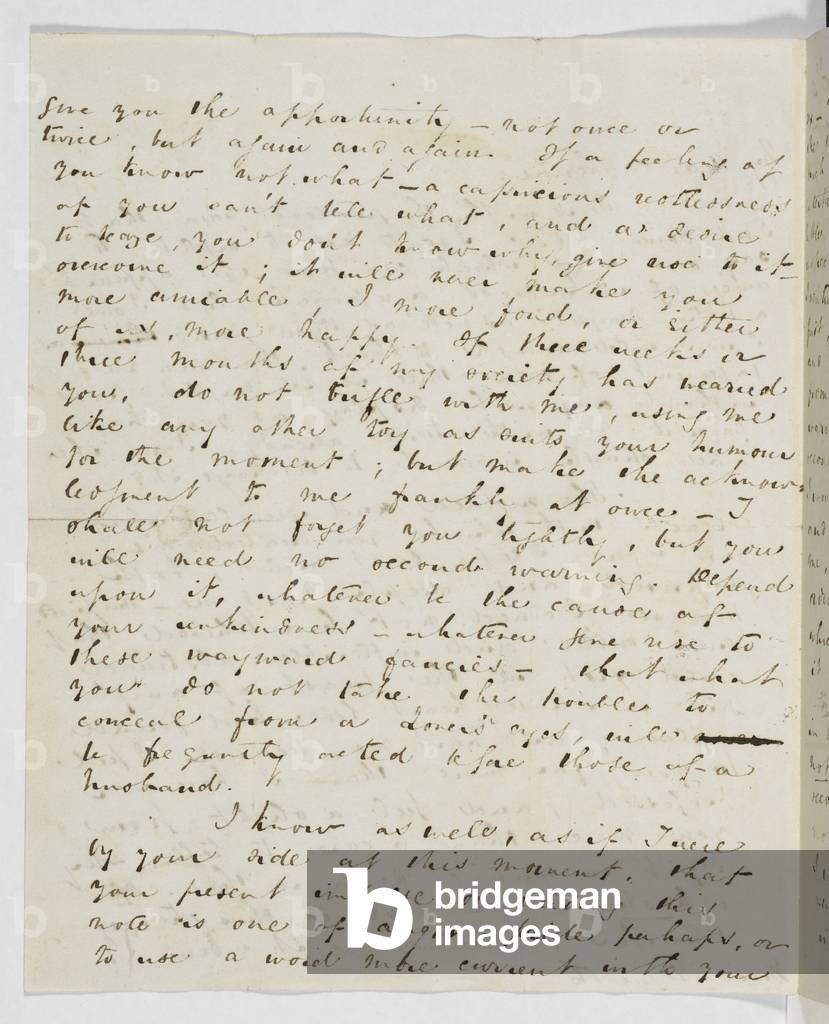 give you the opportunity – not once or
twice, but again and again. If a feeling of
you know not what – a capricious restlessness
of you can't tell what, and a desire
to teaze, you don't know why, give rise to it –
overcome it; it will never make you
more amiable, I more fond, or either
of us, more happy. If three weeks or
three months of my society has wearied
you, do not trifle with me, using me
like any other toy as suits your humour
for the moment; but make the acknow-
ledgment to me frankly at once – I
shall not forget you lightly, but you
will need no second warning. Depend
upon it, whatever be the cause of
your unkindness – whatever give rise to
these wayward fancies – that what
you do not take the trouble to
conceal from a Lover's eyes, will
be frequently acted before those of a
husband.
I know as well, as if I were
by your side at this moment, that
your present this
note is one of perhaps, or
to use a word more current with your
bridgeman
images